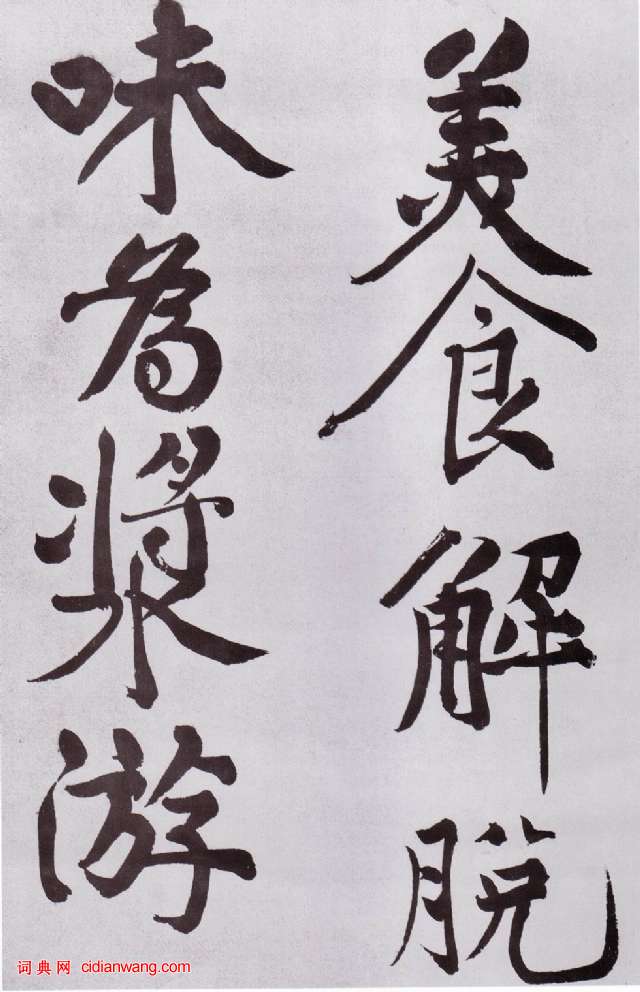 美食解脫
味為漿游
词典网 cidianwang.com